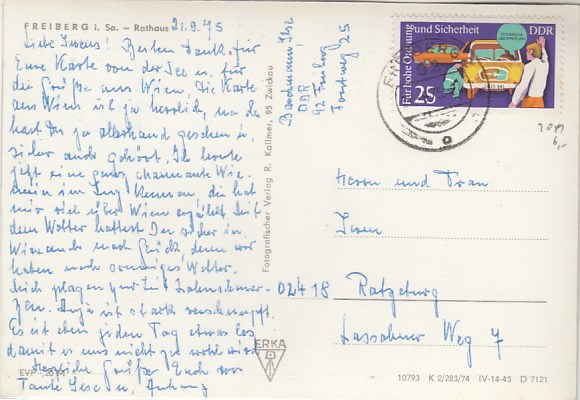 FREIBERG i. Sa. – Rathaus 21.9.75
Liebe Irens! Besten Dank für
Eure Karte von der See u. für
die Grüße aus Wien. Die Karte
aus Wien ist ja herrlich, na da
hast Du ja allerhand gesehen u.
sicher auch gehört. Ich lernte
jetzt eine ganz charmante Wie-
nerin im Zug kennen, die hat
mir viel über Wien erzählt. Mit
dem Wetter hattest Du sicher in
Wien auch noch Glück, denn wir
haben noch sonniges Wetter.
Mich plagen zur Zeit Zahnschmer-
zen. Anja ist stark verschnupft.
Es ist eben jeden Tag etwas los
damit es uns nicht zu wohl wird
Herzliche Grüße Euch von
Tante Ilse u. Anhang
EVP
Fotografischer Verlag R. Kallmer, 95 Zwickau
Ilse
DDR
92 Freiberg
Forstweg 25
ERKA
Für hohe Ordnung und Sicherheit
DDR
25
Herrn und Frau
Irens
02418 Ratzeburg
Weg 7
10793 K 2/283/74 IV-14-45 D 7121